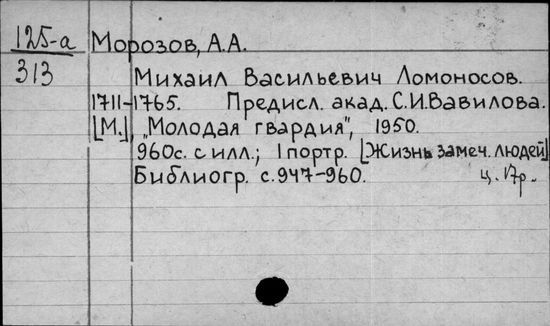 125-а Морозов, А.А.
313 Михаил Васильевич Ломоносов.
1711-1765. Предисл. акад. С.И.Вавилова.
[М.], „Молодая гвардия", 1950.
960с. с илл.; 1 портр. [Жизнь замеч. людей]
Библиогр. с.947-960. ц. 17р.